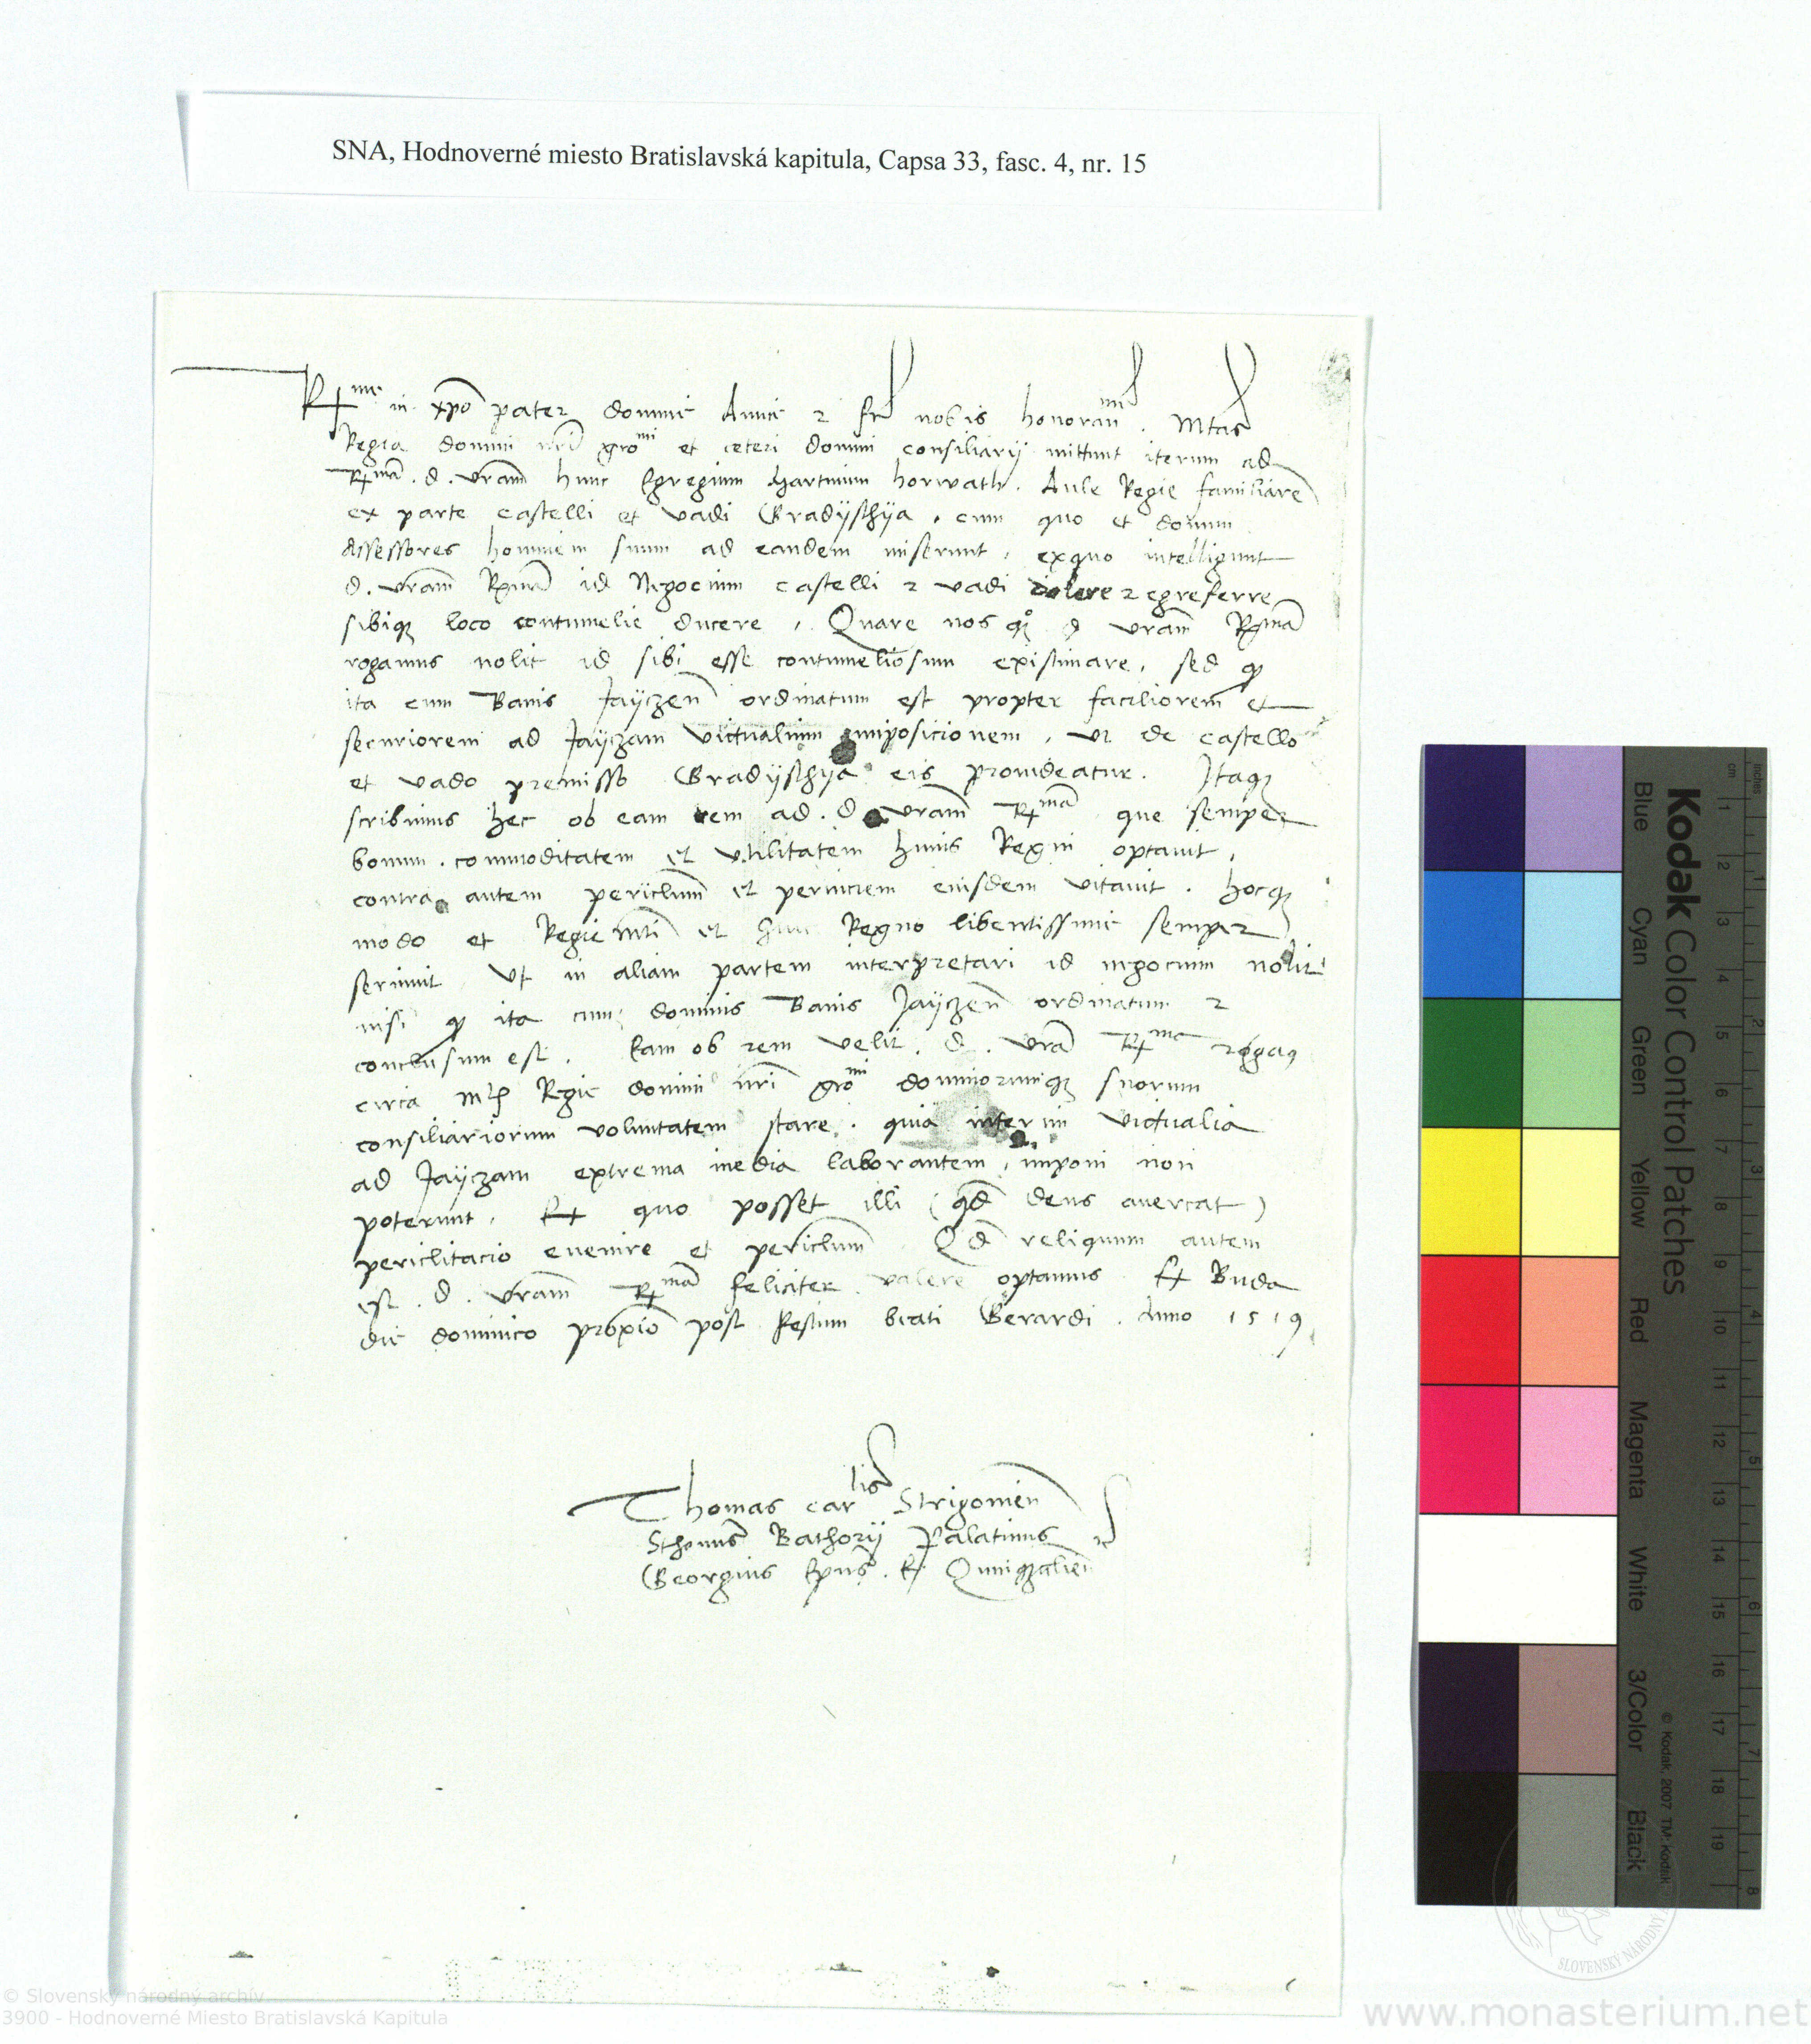 SNA, Hodnoverné miesto Bratislavská kapitula, Capsa 33, fasc. 4, nr. 15
R^me in xpo pater domine Amice et fr nobis honoran^mi. Mtas
Regia domini nri gro^mi et ceteri domini consiliarij mittunt iterum ad
R^mam. d. vram hunc Egregium Martinum horwath. Aule Regie familiarem
ex parte castelli et vadi Gradijschya, cum quo et domini
Assessores hominem suum ad eandem miserunt, exquo intelligunt
d. vram R^mam id Negocium castelli et vadi dolere et egreferre
sibiq loco contumelie ducere, Quare nos d vram R^mam
rogamus nolit id sibi esse contumeliosum existimare, sed q
ita cum Banis Jayczen ordinatum est propter faciliorem et
securiorem ad Jayczam victualium imposicionem, vt de castello
et vado premisso Gradijschya eis prouideatur. Itaq
scribimus hec ob eam rem ad. d. vram R^mam que semper
bonum. commoditatem et vtilitatem huius Regni optauit,
contra autem periclum et perniciem eiusdem vitauit. hocq
modo et Regie Mti et huic Regno libentissime semper
seruiuit Vt in aliam partem interpretari id negocium nolit
nisi q ita cum dominis Banis Jayczen ordinatum et
conclusum est. Eam ob rem velit. d. vra R^ma rogam9
circa Mtis Regie domini nri gro^mi dominorumq suorum
consiliariorum voluntatem stare. quia interim victualia
ad Jayczam extrema inedia laborantem, imponi non
poterunt, Ex quo posset illi (qd deus auertat)
periclitacio euenire et periclum. Qd reliquum autem
est. d. vram R^mam feliciter valere optamus. Ex Buda
die dominico proximo post Festum beati Gerardi. Anno 1519
Thomas car^lis Strigonien
Sthepanus Bathorij Palatinus
Georgius Epus. E. Quinqzalien
Kodak Color Control Patches
Blue Cyan Green Yellow Red Magenta White 3/Color Black
© Kodak, 2007 TM: Kodak
cm 1 2 3 4 5 6 7 8 9 10 11 12 13 14 15 16 17 18 19
Inches 1 2 3 4 5 6 7 8
SLOVENSKÝ NÁRODNÝ
© Slovenský národný archív
3900 - Hodnoverné Miesto Bratislavská Kapitula
www.monasterium.net